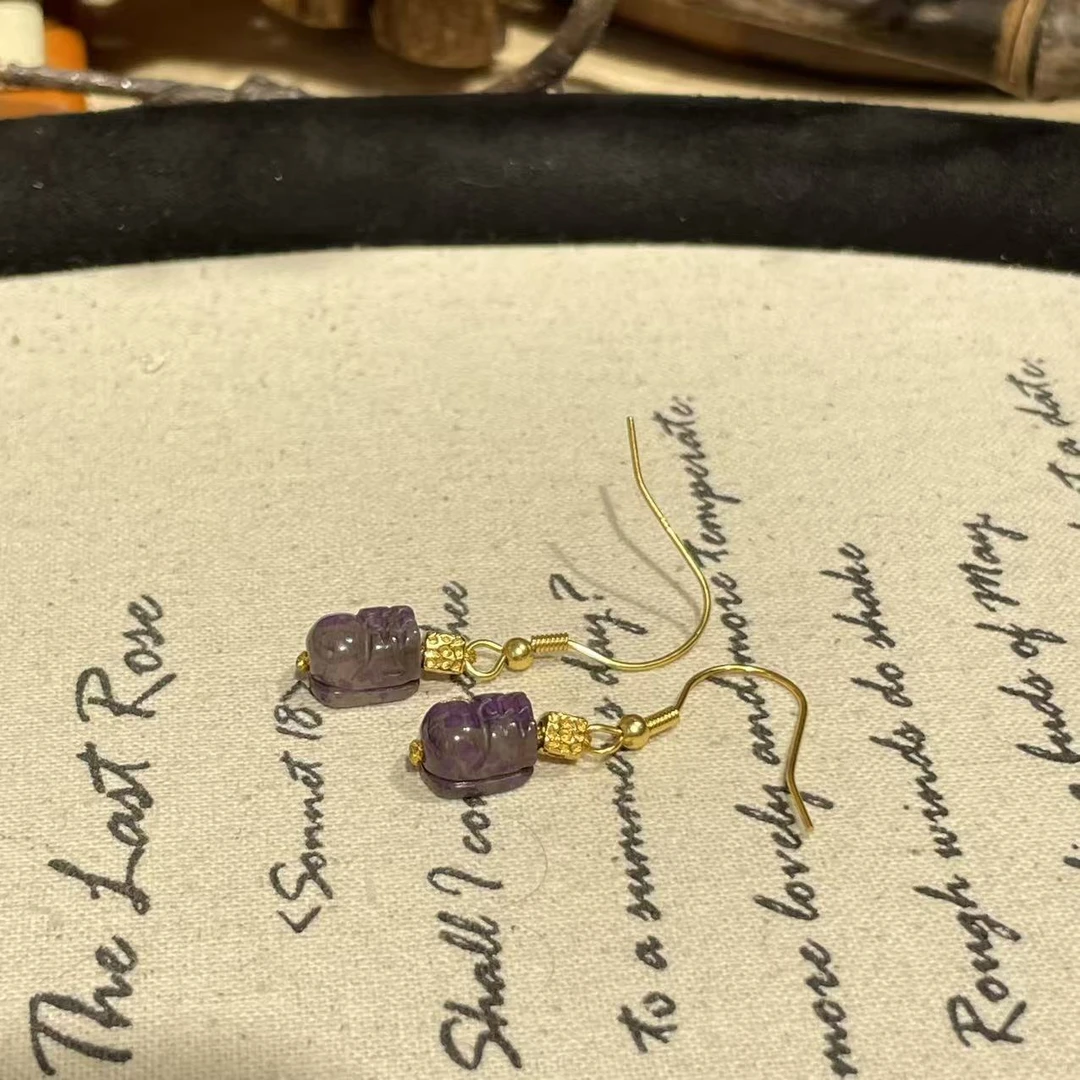 The Last Rose
<Sonnet 18>
Shall I
To a summer's day?
more lovely and more temperate:
Rough winds do shake
buds of May,
a date: